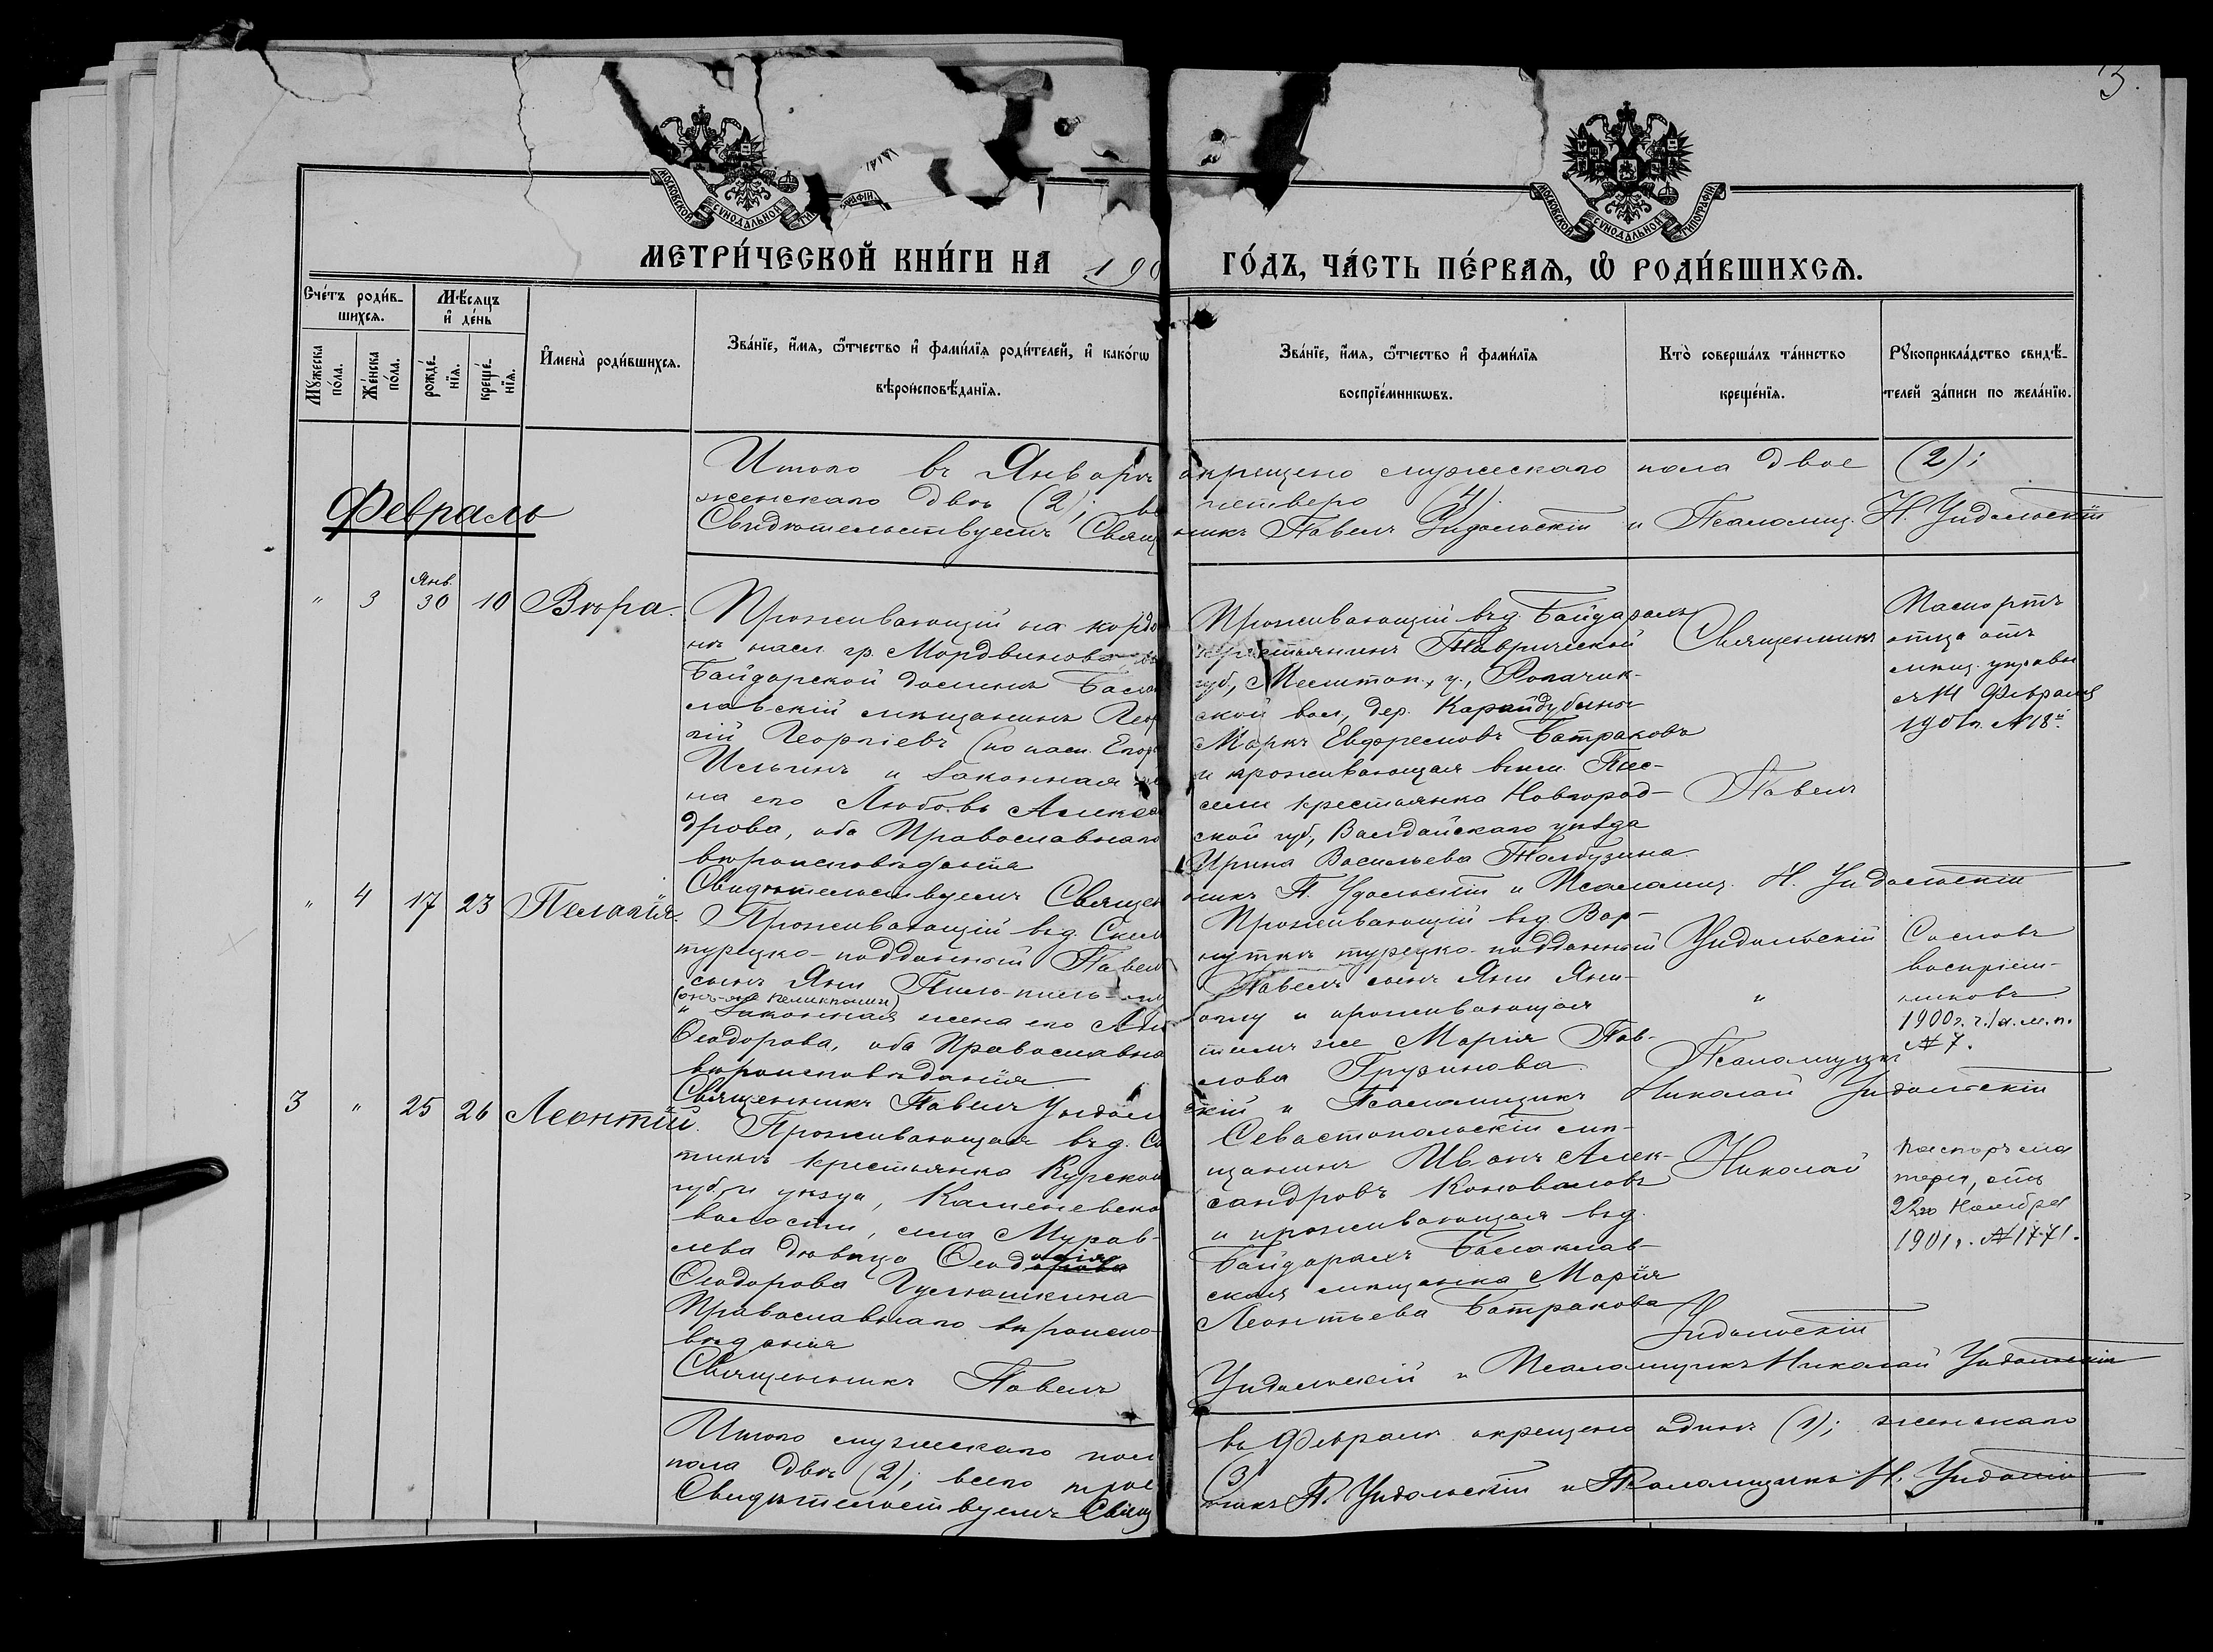 3.
МОСКОВСКОЙ СѴНОДАЛЬНОЙ
МОСКОВСКОЙ СѴНОДАЛЬНОЙ ТИПОГРАФІИ
МЕТРИ́ЧЕСКОЙ КНИ́ГИ НА 190
ГО́ДЪ, ЧА́СТЬ ПЕ́РВАЯ, Ѡ РОДИ́ВШИХСЯ.
Сче́тъ роди́в-
шихся.
Мѣ́сяцъ
и҆ де́нь
Мꙋжеска
по́ла.
Же́нска
по́ла.
рожде́-
нїя.
креще́-
нїя.
И҆мена̀ роди́вшихся.
Зва́нїе, и҆́мя, ѻ҆́тчество и҆ фами́лїя роди́телей, и҆ како́гѡ
вѣроисповѣ́данїя.
Зва́нїе, и҆́мя, ѻ҆́тчество и҆ фами́лїя
воспрїе́мникѡвъ.
Кто̀ соверша́лъ та́инство
креще́нїя.
Рꙋкоприкла́дство свидѣ́-
телей за́писи по жела́нїю.
Февраль
Итого въ Январѣ
женскаго двѣ (2);
Свидѣтельствуемъ Свящ
окрещено мужескаго пола двое (2);
четверо (4).
никъ Павелъ Ундольскій и Псаломщ. Н. Ундольскій
" 3 Янв. 30 10 Вѣра.
Проживающій на кордо
нѣ насл. гр. Мордвинова
Байдарской долины Бала
лавскій мѣщанинъ Геор
гій Георгіевъ (по пасп. Егоръ
Ильинъ и законная же
на его Любовь Алексан
дрова, оба Православнаго
вѣроисповѣданія
Свидѣтельствуемъ Священ
Проживающій въ д. Байдарахъ
крестьянинъ Таврической
губ., Мелитоп., у., Рогачик-
ской вол., дер. Карайдубины
Маркъ Евфремовъ Батраковъ
и проживающая въ им. Тес-
сели крестьянка Новгород-
ской губ., Валдайскаго уѣзда
Ирина Васильева Толбузина.
никъ П. Ундольскій и Псаломщ. Н. Ундольскій
Священникъ
Павелъ
Ундольскій
"
Псаломщикъ
Николай
Ундольскій
Паспортъ
отца отъ
мѣщ. управы
14 Февраля
1901 г. №18.
" 4 17 23 Пелагія.
Проживающій въ д. Скел
турецко-подданный Павелъ
сынъ Яни
и законная жена его
Ѳеодорова, оба Православна
вѣроисповѣданія
Священникъ Павелъ Ундоль
Проживающій въ д. Вар-
нуткѣ турецко-подданный
Павелъ сынъ Яни Яни-
оглу и проживающая
тамъ же Марія Пав-
лова Грузинова.
скій и Псаломщикъ Николай Ундольскій
Со словъ
воспріем-
никовъ
1900 г. ч. 1 а. м. п.
№ 7.
3 " 25 26 Леонтій.
Проживающая въ д. Са
тикъ крестьянка Курской
губ. и уѣзда, Каменевско
волости, села Мурав-
лева дѣвица Ѳеодосія
Ѳеодорова Гуглашкина
Православнаго вѣроиспо-
вѣданія
Священникъ Павелъ
Севастопольскій мѣ-
щанинъ Иванъ Алек-
сандровъ Коноваловъ
и проживающая въ д.
Байдарахъ Балаклав-
ская мѣщанка Марія
Леонтьева Батракова
Ундольскій и Псаломщикъ Николай Ундольскій
Паспортъ ма
тери, отъ
22го Ноября
1901 г. №1771.
Итого мужескаго пол
пола двѣ (2); всего трое
Свидѣтельствуемъ Свящ
въ Февралѣ окрещено одинъ (1); женскаго
(3)
никъ П. Ундольскій и Псаломщикъ Н. Ундольскій